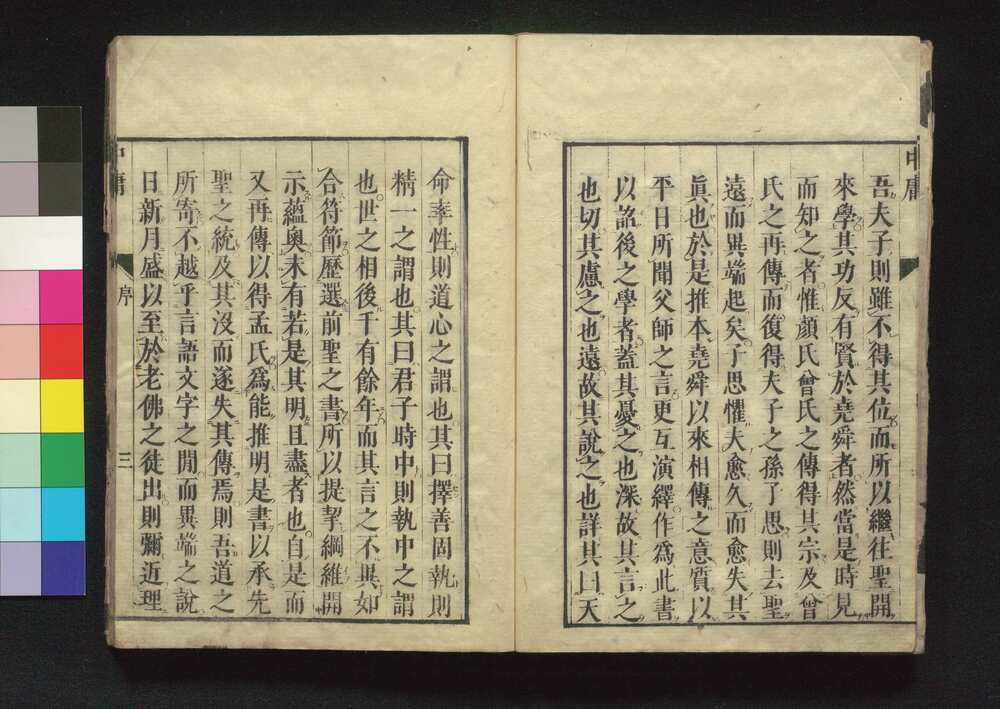 中庸
吾夫子則雖不得其位而所以繼往聖開
來學其功反有賢於堯舜者然當是時見
而知之者惟顏氏曾氏之傳得其宗及曾
氏之再傳而復得夫子之孫子思則去聖
遠而異端起矣子思懼夫愈久而愈失其
眞也於是推本堯舜以來相傳之意質以
平日所聞父師之言更互演繹作爲此書
以詔後之學者蓋其憂之也深故其言之
也切其慮之也遠故其說之也詳其曰天
命率性則道心之謂也其曰擇善固執則
精一之謂也其曰君子時中則執中之謂
也世之相後千有餘年而其言之不異如
合符節歷選前聖之書所以提挈綱維開
示蘊奧未有若是其明且盡者也自是而
又再傳以得孟氏爲能推明是書以承先
聖之統及其沒而遂失其傳焉則吾道之
所寄不越乎言語文字之閒而異端之說
日新月盛以至於老佛之徒出則彌近理
中庸 序 三